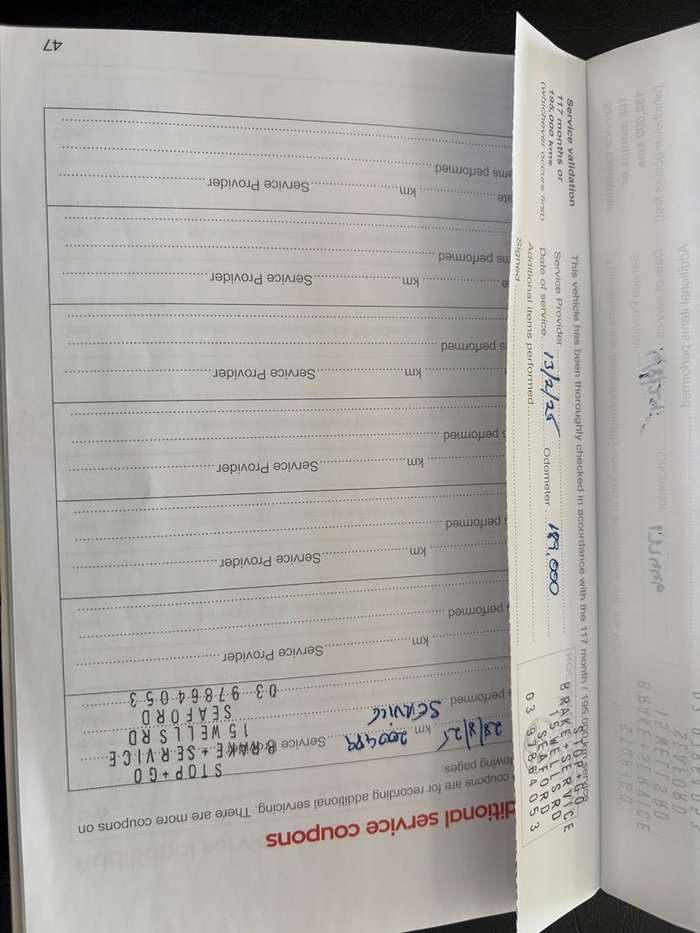 Additional service coupons
coupons are for recording additional servicing. There are more coupons on
lowing pages.
STOP + GO
BRAKE + SERVICE
15 WELLS RD
SEAFORD
03 97864053
28/8/25 km Service Provider
s performed SERVICE
km Service Provider
s performed
km Service Provider
s performed
km Service Provider
s performed
km Service Provider
s performed
e km Service Provider
ms performed
ate km Service Provider
ems performed
47
Service validation
117 months or
195,000 kms
(whichever occurs first)
This vehicle has been thoroughly checked in accordance with the 117 month / 195,000 km service.
Service Provider
Date of service 13/2/25 Odometer 189,000
Additional items performed
Signed
STOP + GO
BRAKE + SERVICE
15 WELLS RD
SEAFORD
03 97864053
Service validation
108 months or
180,000 kms
(whichever occurs first)
Service Provider
Date of service
Odometer
Additional items performed